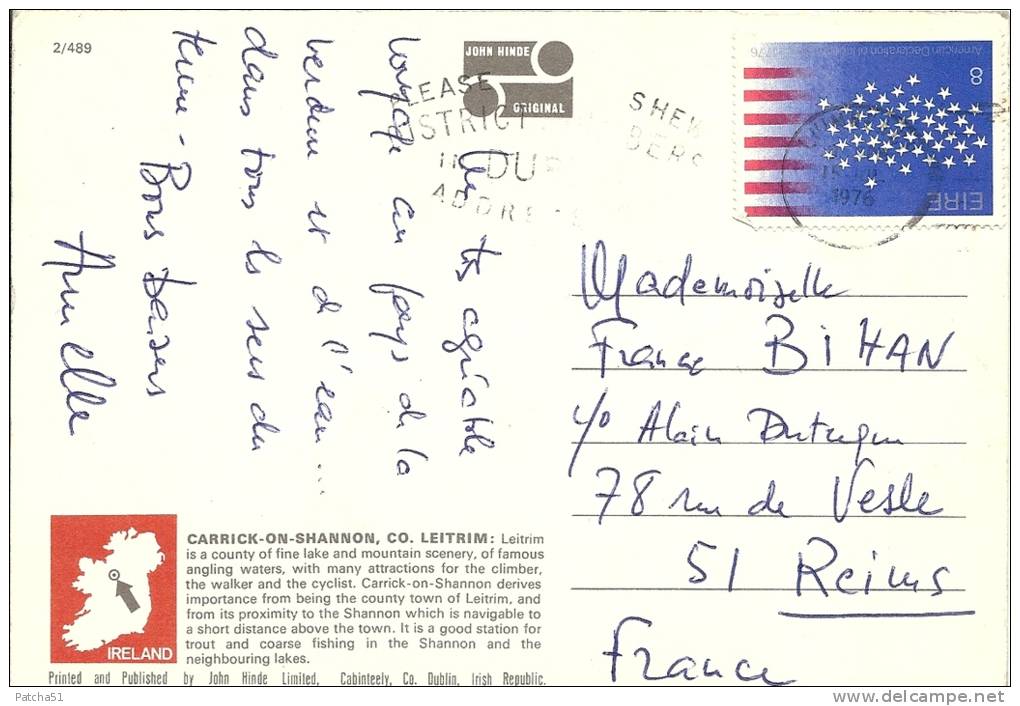 2/489
JOHN HINDE
ORIGINAL
LEASE
DISTRICT
in DUB
ADDRE
SHEW
BERS
American Declaration of 1776
8
EIRE
1976
Un très agréable
voyage au pays de la
verdure et de l'eau...
dans tous les sens du
terme - Bons baisers
Armelle
Mademoiselle
France BIHAN
c/o Alain
78 rue de Vesle
51 Reims
France
IRELAND
CARRICK-ON-SHANNON, CO. LEITRIM: Leitrim
is a county of fine lake and mountain scenery, of famous
angling waters, with many attractions for the climber,
the walker and the cyclist. Carrick-on-Shannon derives
importance from being the county town of Leitrim, and
from its proximity to the Shannon which is navigable to
a short distance above the town. It is a good station for
trout and coarse fishing in the Shannon and the
neighbouring lakes.
Printed and Published by John Hinde Limited, Cabinteely, Co. Dublin, Irish Republic.
Patcha51
delcampe.net